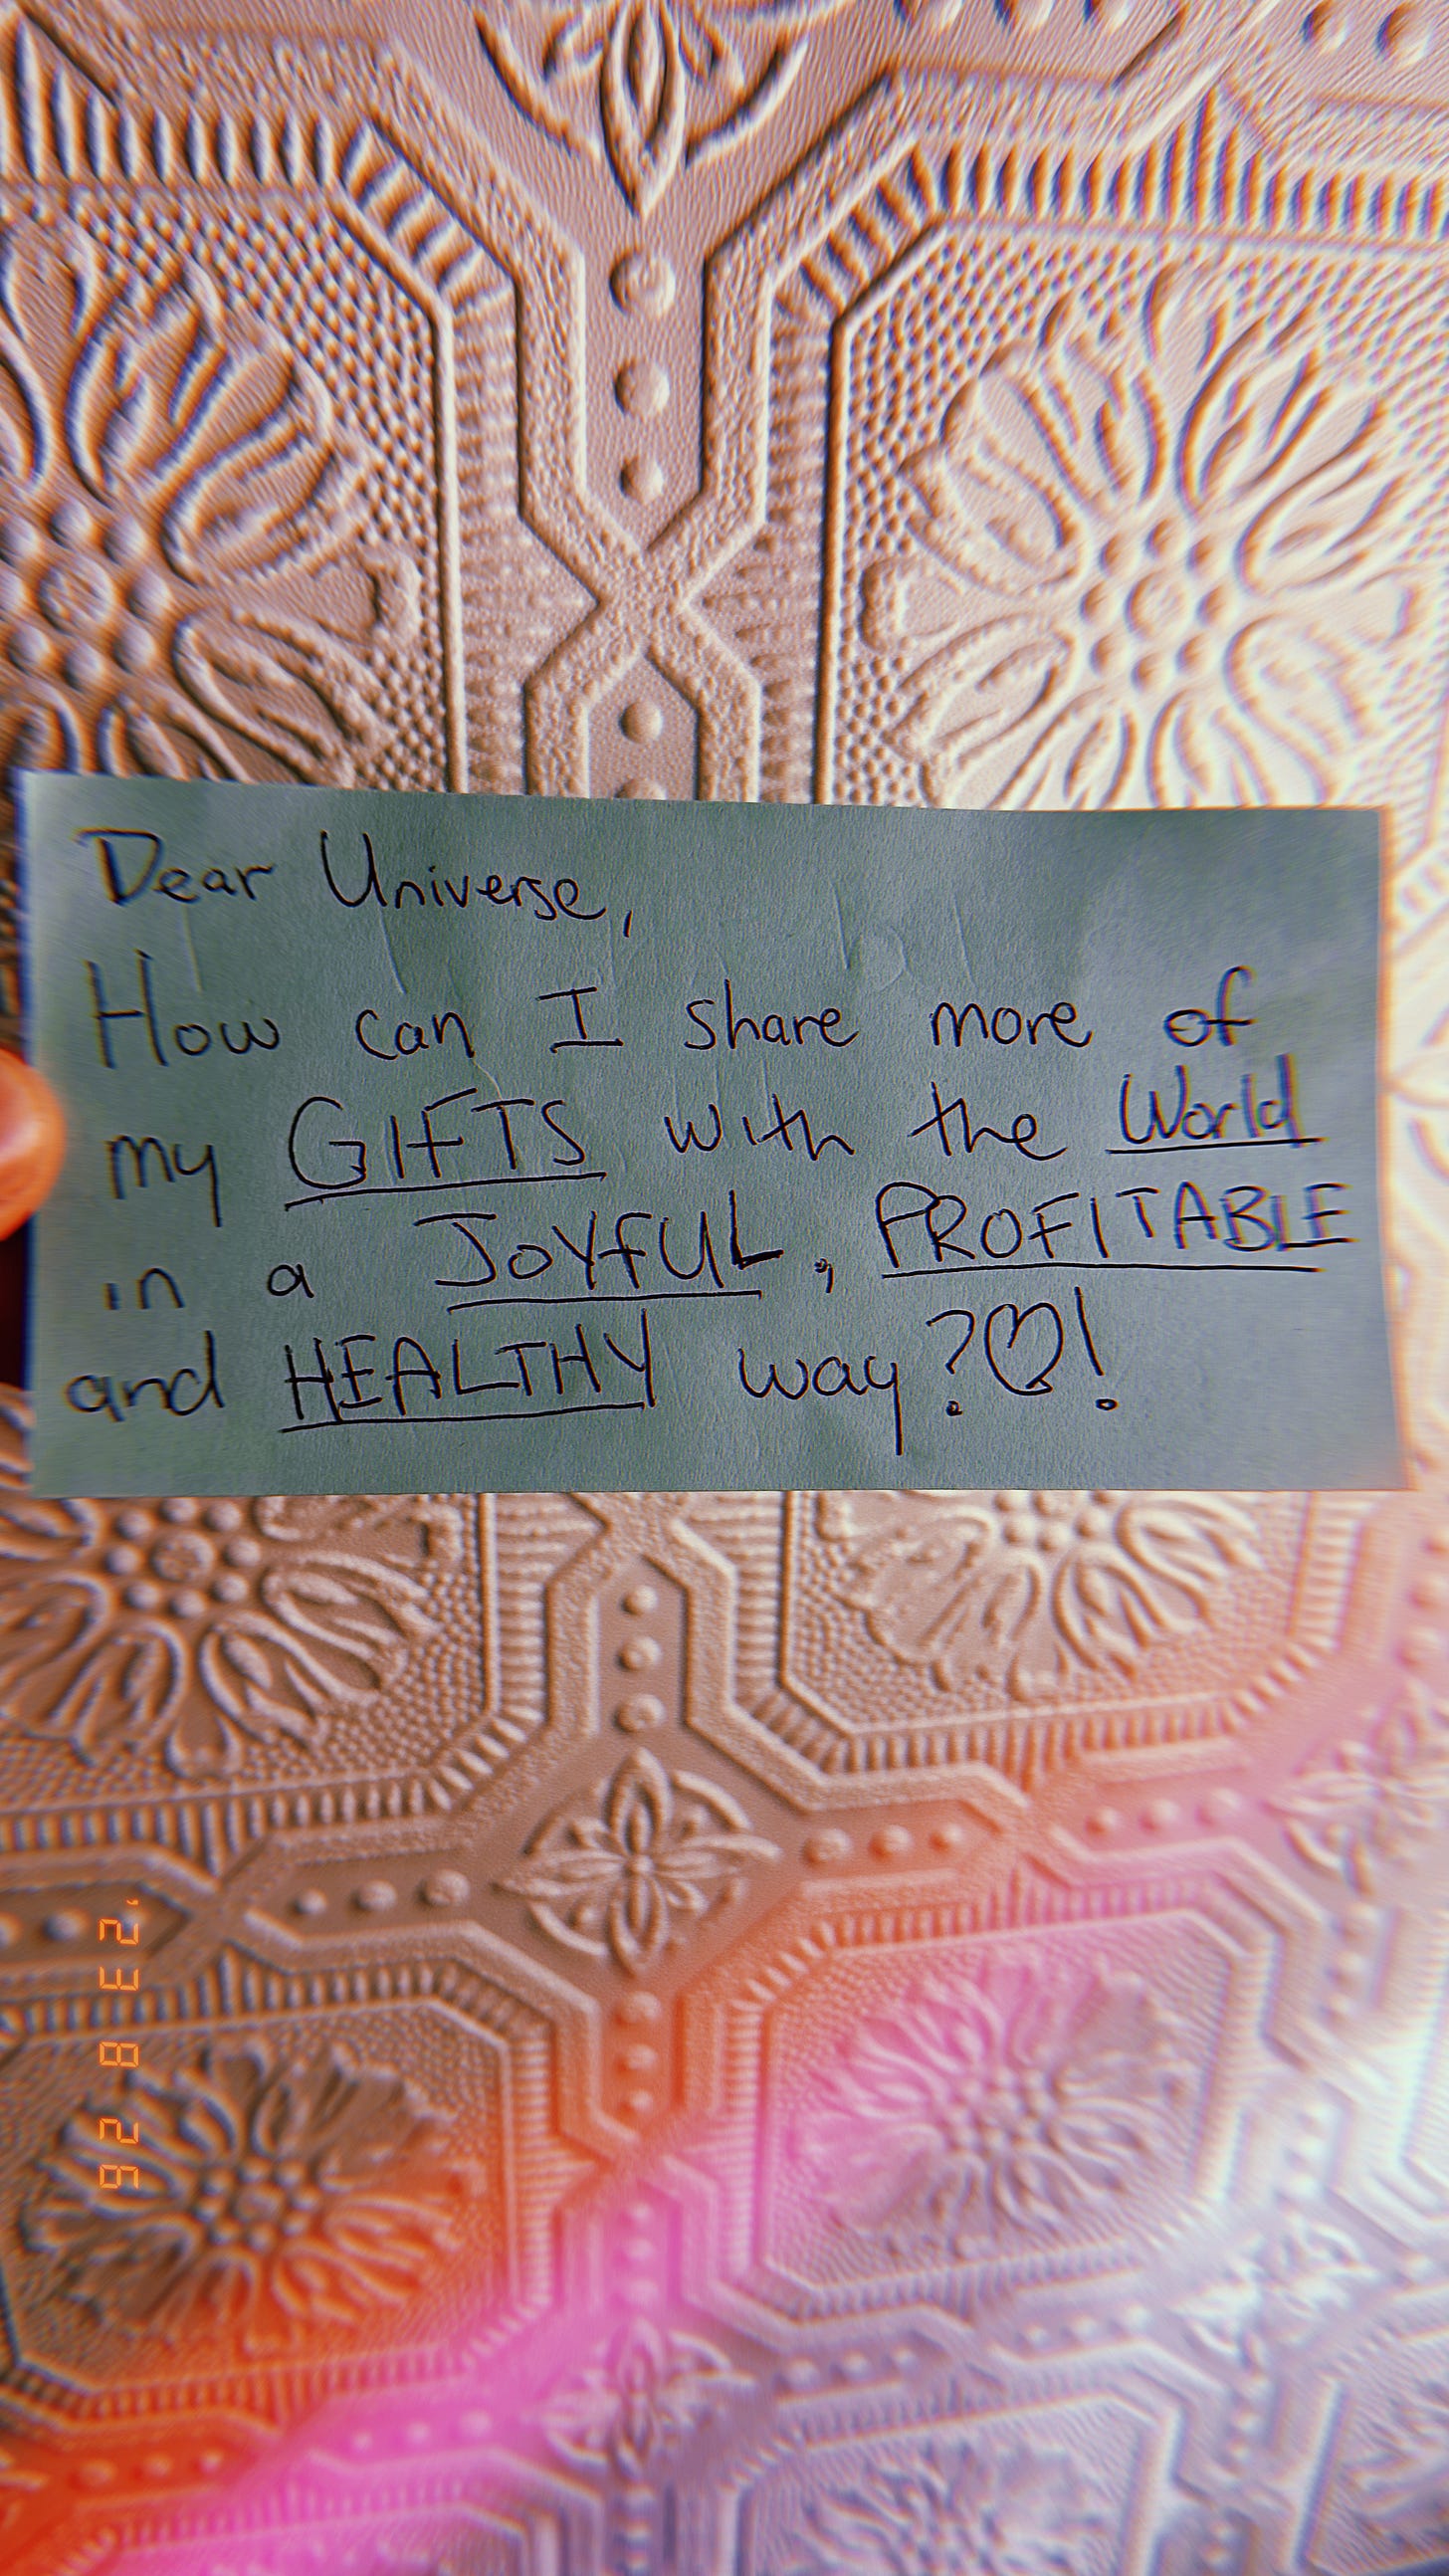 Dear Universe,
How can I share more of
my GIFTS with the World
in a JOYfUL, PROFITABLE
and HEALTHY way?♡!
'23 8 26